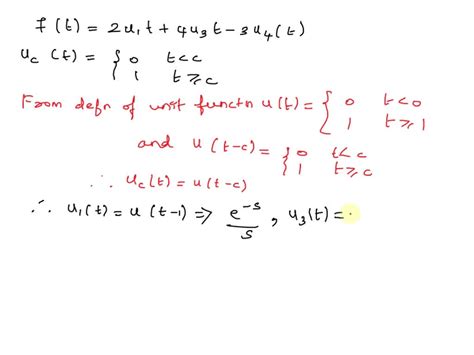 f(t) = 2u₁t + 4u₃t - 3u₄(t)
u_c(t) = { 0 t<c
1 t≥c
From defn of unit functn u(t) = { 0 t<0
1 t≥1
and u(t-c) = { 0 t<c
1 t≥c
∴ u_c(t) = u(t-c)
∴ u₁(t) = u(t-1) ⇒ e^{-s}/s, u₃(t) =